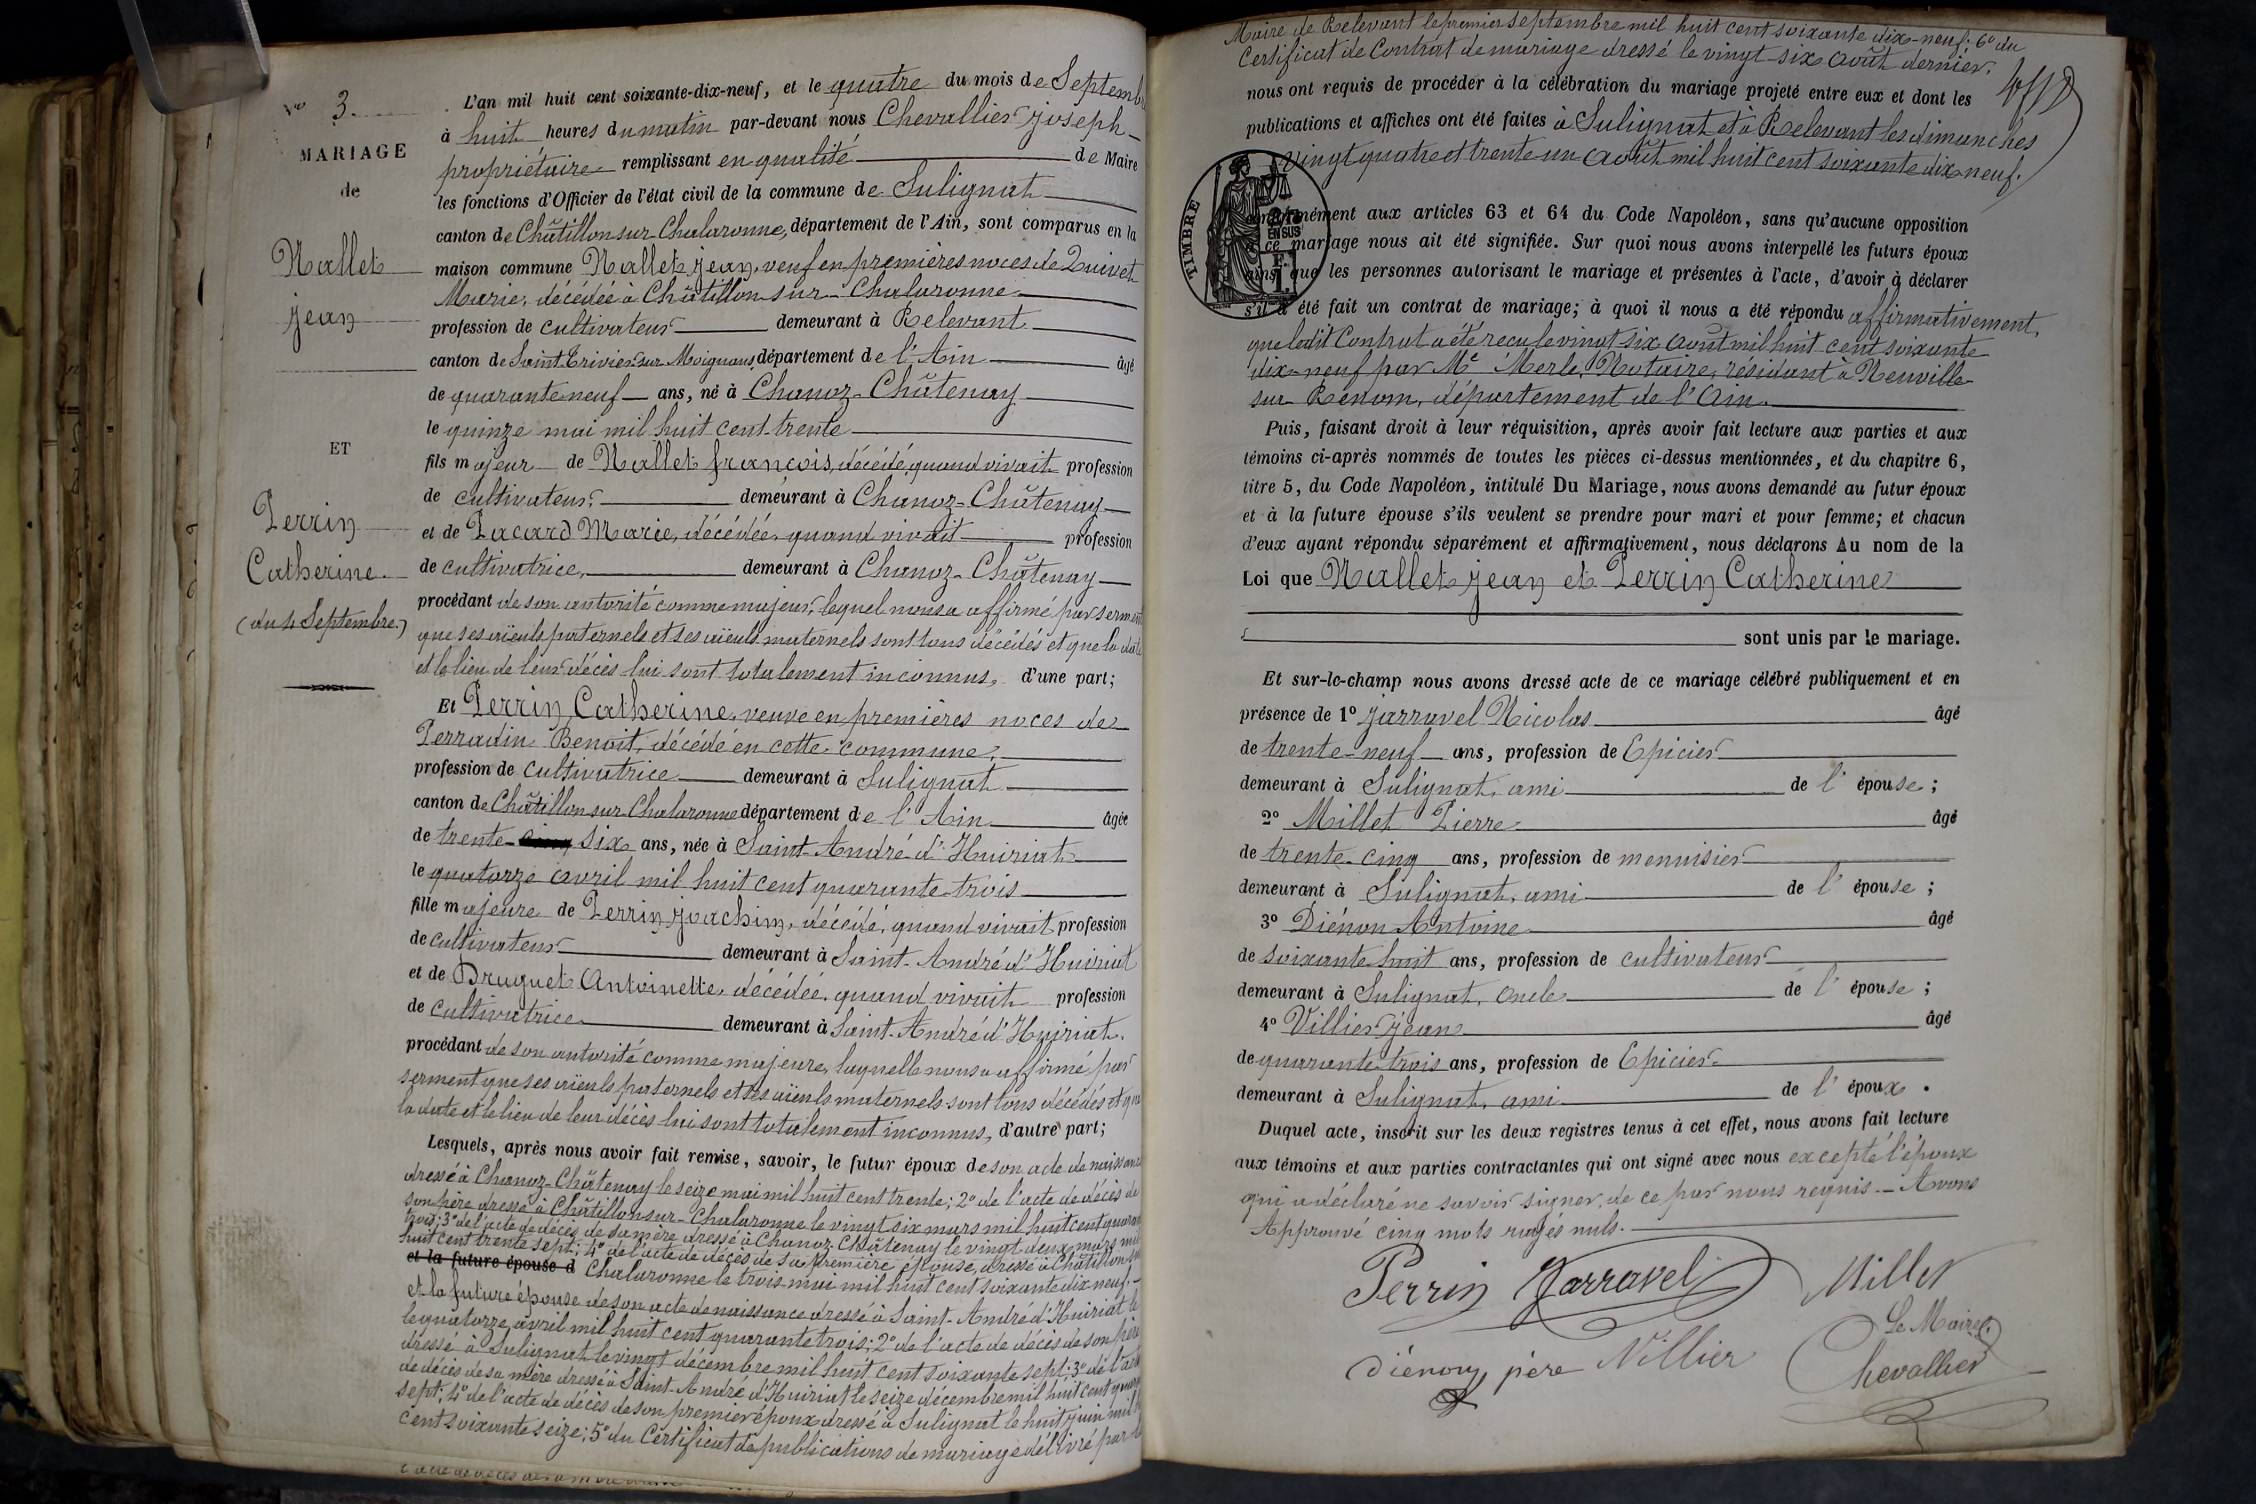 No 3.
MARIAGE
de
Nallet
jean
ET
Perrin
Catherine.
(du 4 Septembre.)
L'an mil huit cent soixante-dix-neuf, et le quatre du mois de Septemb
à huit heures du matin par-devant nous Chevallier joseph
propriétaire remplissant en qualité de Maire
les fonctions d'Officier de l'état civil de la commune de Sulignat
canton de Châtillon sur Chalaronne, département de l'Ain, sont comparus en la
maison commune Nallet jean, veuf en premières noces de Quivet
Marie, décédée à Châtillon sur Chalaronne
profession de cultivateur demeurant à Relevant
canton de Saint Trivier sur Moignans département de l'Ain âgé
de quarante neuf ans, né à Chanoz-Châtenay
le quinze mai mil huit cent trente
fils majeur de Nallet françois, décédé, quand vivait profession
de cultivateur, demeurant à Chanoz-Châtenay
et de Pacard Marie, décédée, quand vivait profession
de cultivatrice, demeurant à Chanoz-Châtenay
procédant de son autorité comme majeur, lequel nous a affirmé par serment
que ses aïeuls paternels et ses aïeuls maternels sont tous décédés et que la date
et le lieu de leur décès lui sont totalement inconnus, d'une part;
Et Perrin Catherine, veuve en premières noces de
Perradin Benoit, décédé en cette commune,
profession de cultivatrice demeurant à Sulignat
canton de Châtillon sur Chalaronne département de l'Ain âgée
de trente-cinq six ans, née à Saint-André d'Huiriat
le quatorze avril mil huit cent quarante-trois
fille majeure de Perrin joachim, décédé, quand vivait profession
de cultivateur demeurant à Saint-André d'Huiriat
et de Druguet Antoinette, décédée, quand vivait profession
de cultivatrice demeurant à Saint-André d'Huiriat,
procédant de son autorité comme majeure, laquelle nous a affirmé par
serment que ses aïeuls paternels et ses aïeuls maternels sont tous décédés et que
la date et le lieu de leur décès lui sont totalement inconnus, d'autre part;
Lesquels, après nous avoir fait remise, savoir, le futur époux de son acte de naissance
dressé à Chanoz-Châtenay le seize mai mil huit cent trente; 2º de l'acte de décès de
son père dressé à Châtillon sur-Chalaronne le vingt six mars mil huit cent quaran
trois; 3º de l'acte de décès de sa mère dressé à Chanoz Châtenay le vingt deux mars mil
huit cent trente sept; 4º de l'acte de décès de sa première épouse, dressé à Châtillon sur
et la future épouse d Chalaronne le trois mai mil huit cent soixante dix neuf.
et la future épouse de son acte de naissance dressé à Saint-André d'Huiriat le
le quatorze avril mil huit cent quarante trois; 2º de l'acte de décès de son père
dressé à Sulignat le vingt décembre mil huit cent soixante sept; 3º de l'acte
de décès de sa mère dressé à Saint-André d'Huiriat le seize décembre mil huit cent quara
sept; 4º de l'acte de décès de son premier époux dressé à Sulignat le huit juin mil h
cent soixante seize; 5º du Certificat de publications de mariage délivré par le
Maire de Relevant le premier septembre mil huit cent soixante dix-neuf; 6º du
Certificat de Contrat de mariage dressé le vingt-six août dernier,
nous ont requis de procéder à la célébration du mariage projeté entre eux et dont les
publications et affiches ont été faites à Sulignat et à Relevant les dimanches
vingt quatre et trente un août mil huit cent soixante dix neuf.
TIMBRE
EN SUS
conformément aux articles 63 et 64 du Code Napoléon, sans qu'aucune opposition
à ce mariage nous ait été signifiée. Sur quoi nous avons interpellé les futurs époux
ainsi que les personnes autorisant le mariage et présentes à l'acte, d'avoir à déclarer
s'il a été fait un contrat de mariage; à quoi il nous a été répondu affirmativement,
que ledit Contrat a été reçu le vingt six août mil huit cent soixante
dix-neuf par Me Merle, Notaire, résidant à Neuville
sur Renom, département de l'Ain.
Puis, faisant droit à leur réquisition, après avoir fait lecture aux parties et aux
témoins ci-après nommés de toutes les pièces ci-dessus mentionnées, et du chapitre 6,
titre 5, du Code Napoléon, intitulé Du Mariage, nous avons demandé au futur époux
et à la future épouse s'ils veulent se prendre pour mari et pour femme; et chacun
d'eux ayant répondu séparément et affirmativement, nous déclarons Au nom de la
Loi que Nallet jean et Perrin Catherine
sont unis par le mariage.
Et sur-le-champ nous avons dressé acte de ce mariage célébré publiquement et en
présence de 1º Jarravel Nicolas âgé
de trente-neuf ans, profession de Epicier
demeurant à Sulignat, ami de l'épouse;
2º Millet Pierre âgé
de trente-cinq ans, profession de menuisier
demeurant à Sulignat, ami de l'épouse;
3º Diénon Antoine âgé
de soixante huit ans, profession de cultivateur
demeurant à Sulignat, oncle de l'épouse;
4º Villier jean âgé
de quarante-trois ans, profession de Epicier
demeurant à Sulignat, ami de l'époux.
Duquel acte, inscrit sur les deux registres tenus à cet effet, nous avons fait lecture
aux témoins et aux parties contractantes qui ont signé avec nous excepté l'époux
qui a déclaré ne savoir signer, de ce par nous requis. - Avons
Approuvé cinq mots rayés nuls.
Perrin Jarravel Millet
Le Maire,
diénon père Villier Chevallier